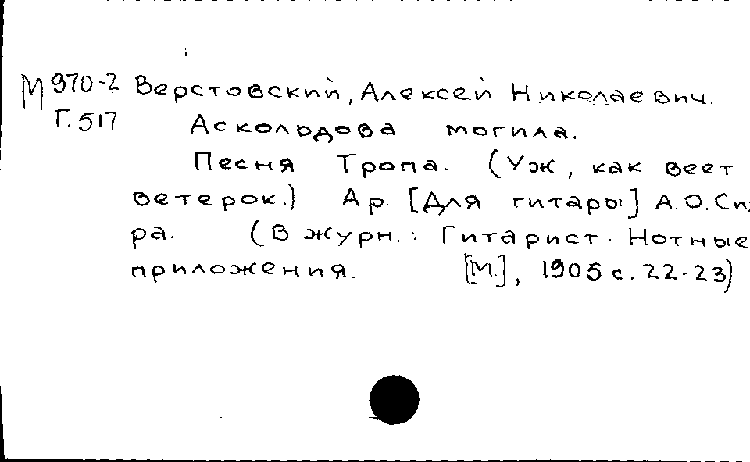 М 970-2 Верстовский, Алексей Николаевич.
Г.517 Аскольдова могила.
Песня Тропа. (Уж, как веет
ветерок.) Ар. [Для гитары] А.О.
ра. (В журн.: Гитарист. Нотные
приложения. [М.], 1905 с. 22-23)